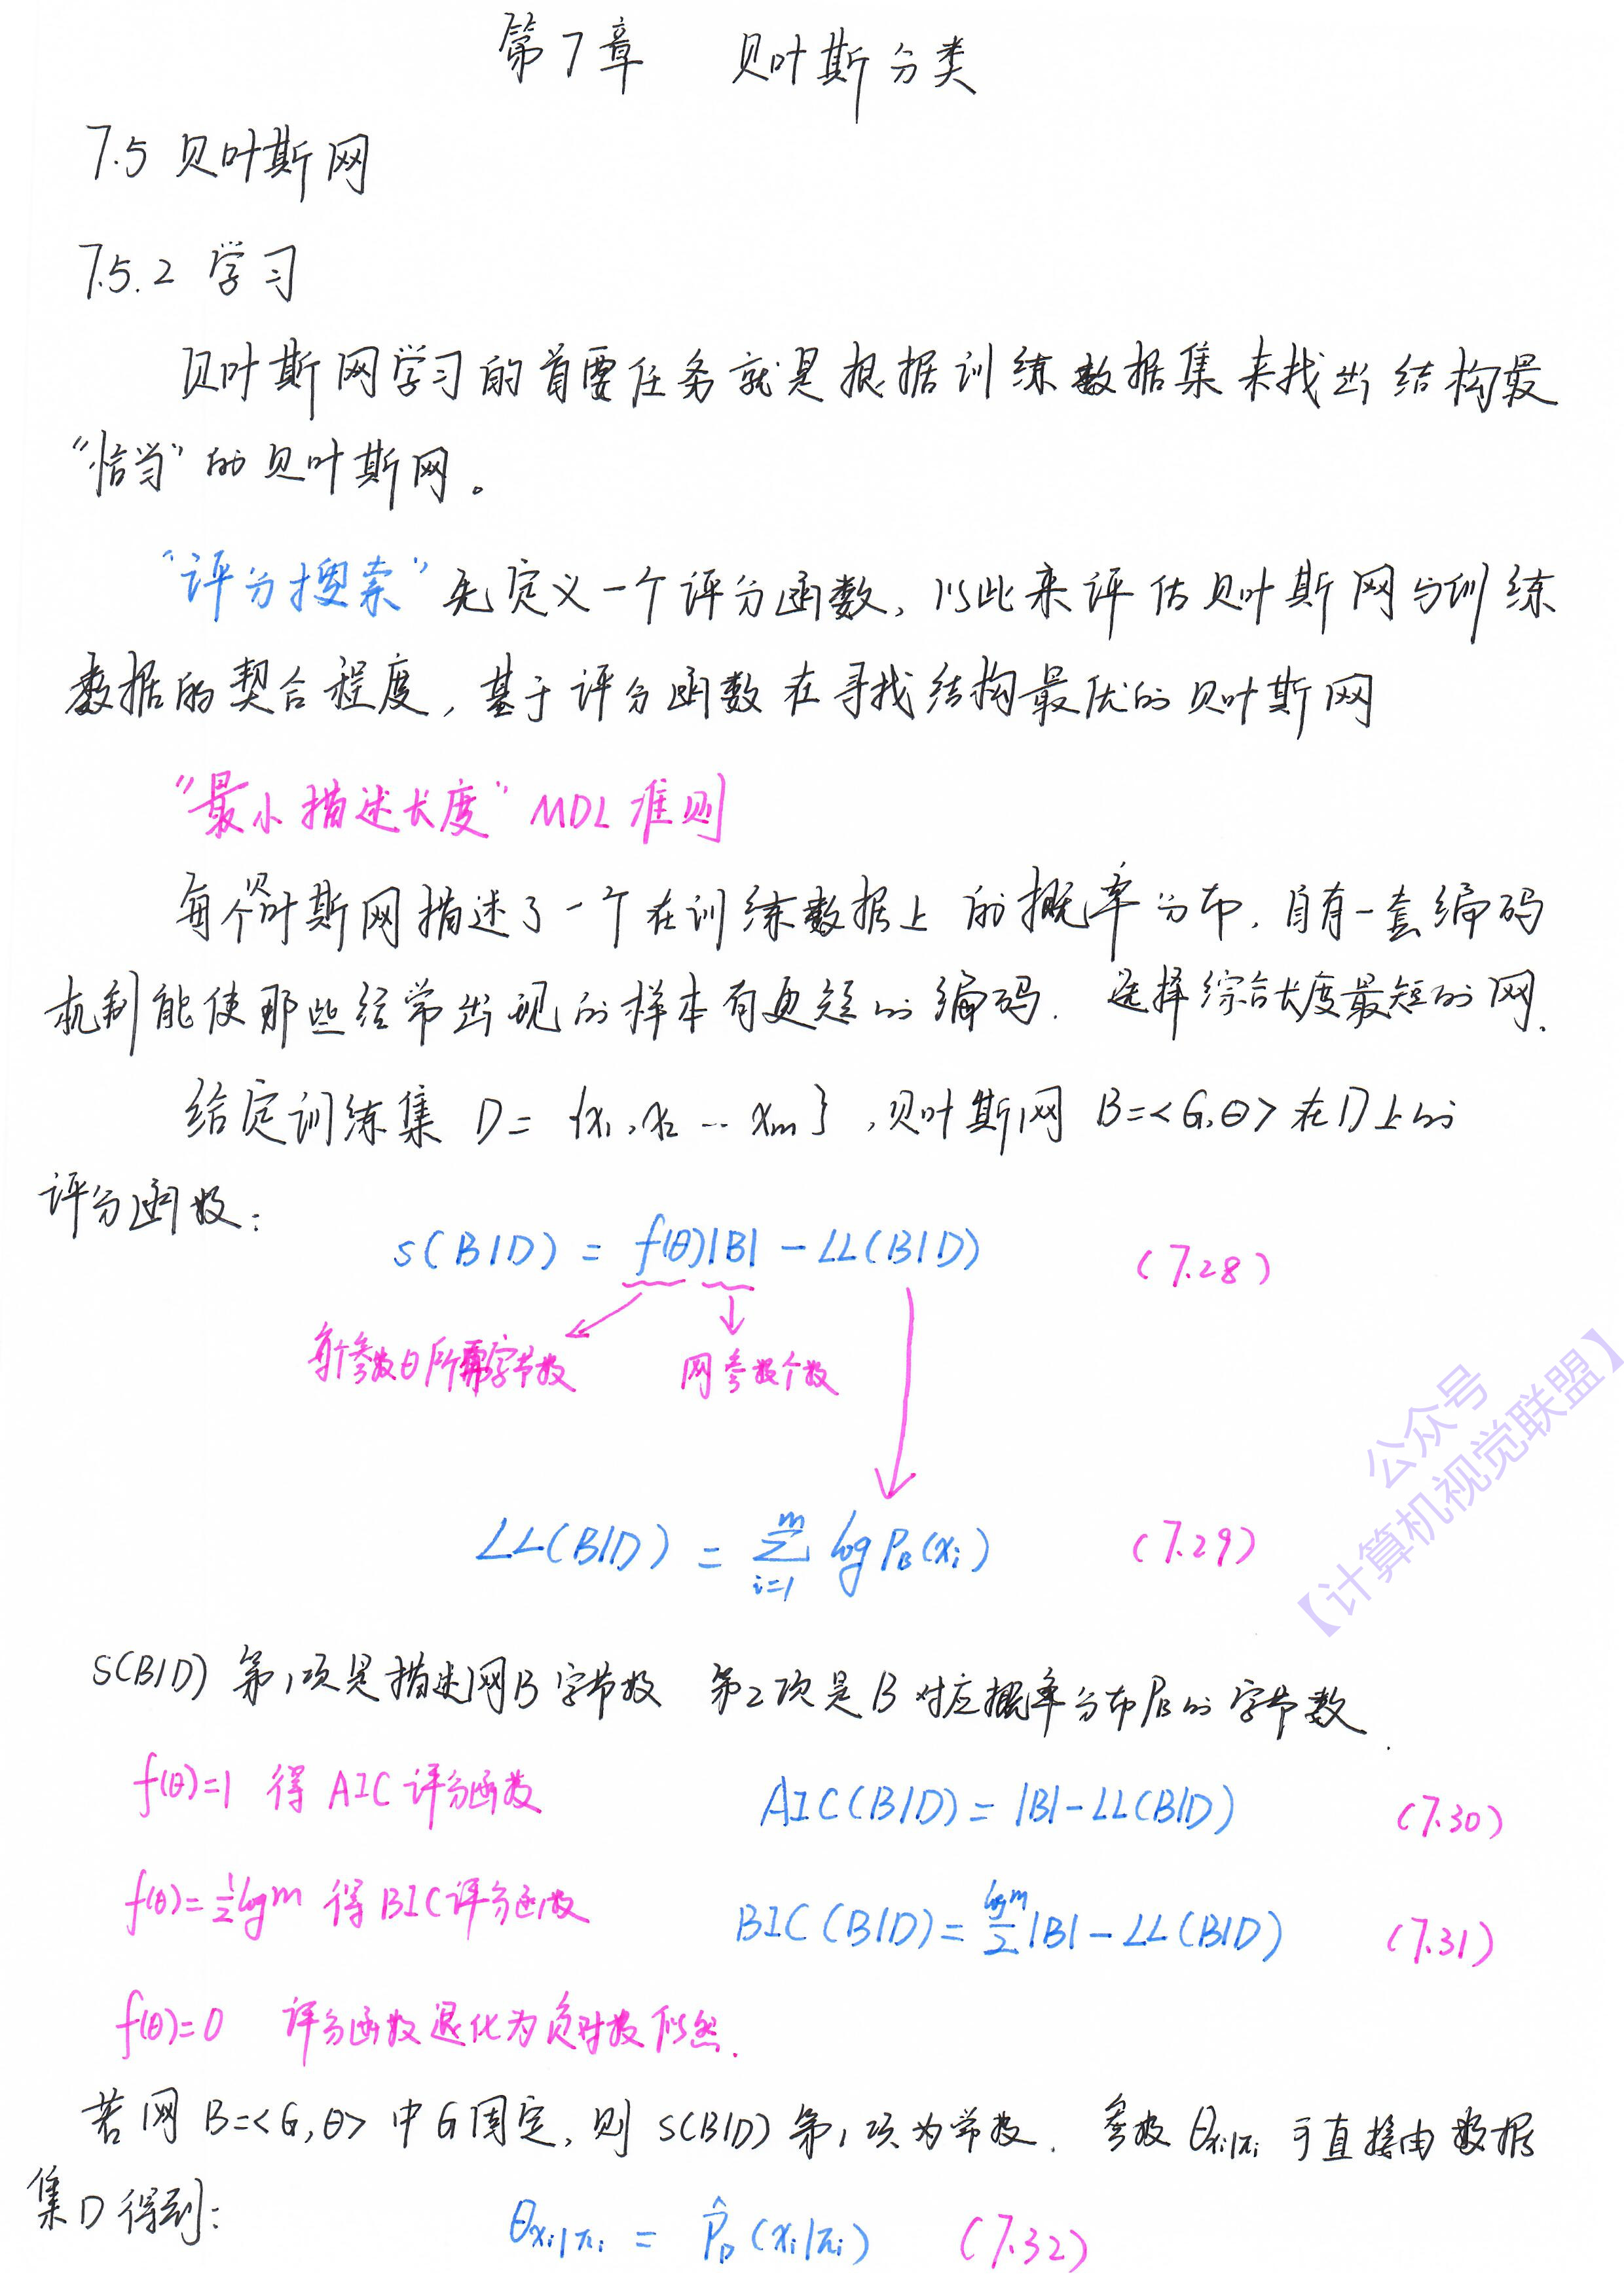 第7章 贝叶斯分类
7.5 贝叶斯网
7.5.2 学习
贝叶斯网学习的首要任务就是根据训练数据集来找出结构最
“恰当”的贝叶斯网。
“评分搜索”先定义一个评分函数,以此来评估贝叶斯网与训练
数据的契合程度,基于评分函数在寻找结构最优的贝叶斯网
“最小描述长度”MDL准则
每个贝叶斯网描述了一个在训练数据上的概率分布,自有一套编码
机制能使那些经常出现的样本有更短的编码. 选择综合长度最短的网.
给定训练集 D = {x₁,x₂ … xₘ},贝叶斯网 B=<G,θ>在D上的
评分函数:
s(B|D) = f(θ)|B| - LL(B|D) (7.28)
每个参数θ所需字节数 网参数个数
LL(B|D) = ∑ᵢ₌₁ᵐ log P_B(xᵢ) (7.29)
公众号
【计算机视觉联盟】
S(B|D) 第1项是描述网B字节数 第2项是B对应概率分布P_B的字节数.
f(θ)=1 得 AIC 评分函数 AIC(B|D) = |B| - LL(B|D) (7.30)
f(θ)=½logm 得BIC评分函数 BIC(B|D) = logm/2 |B| - LL(B|D) (7.31)
f(θ)=0 评分函数退化为负对数似然.
若网 B=<G,θ>中G固定,则 s(B|D) 第1项为常数. 参数 θ_xᵢ|πᵢ 可直接由数据
集D得到:
θ_xᵢ|πᵢ = P̂_D(xᵢ|πᵢ) (7.32)